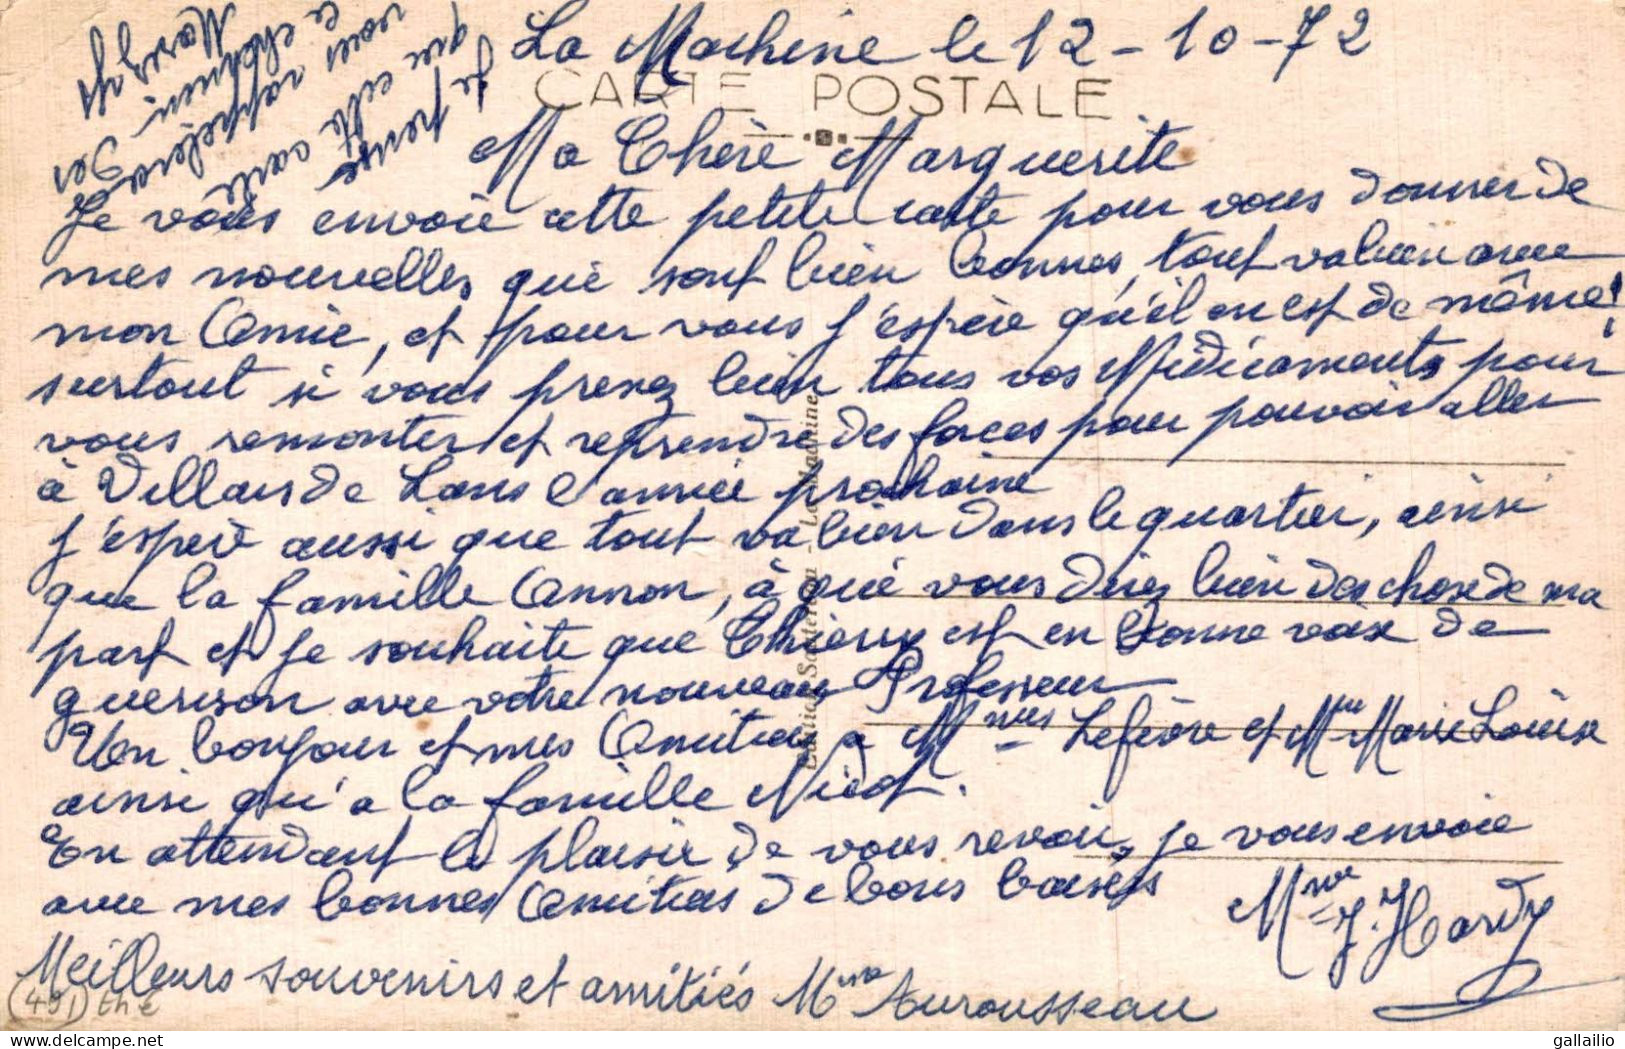 La Machine le 12-10-72
CARTE POSTALE
Ma Chère Marguerite
Je vous envoie cette petite carte pour vous donner de
mes nouvelles, qui sont bien bonnes, tout va bien avec
mon Amie, et pour vous j'espère qu'il en est de même!
surtout si vous prenez bien tous vos Médicaments pour
vous remonter et reprendre des forces pour pouvoir aller
à Villars de Lans l'année prochaine
j'espère aussi que tout va bien dans le quartier, ainsi
que la famille Annon, à qui vous direz bien des chose de ma
part et je souhaite que Thierry est en bonne voix de
guerison avec votre nouveau Professeur
Un bonjour et mes Amitiés à Mmes Lefèvre et Mme Marie Louise
ainsi qu'a la famille Nicot.
En attendant le plaisir de vous revoir, je vous envoie
avec mes bonnes Amitiés de bons baisers
Mme J. Hardy
Meilleurs souvenirs et amitiés Mme Aurousseau
Je pense
que cette carte
vous rappelera
le chemin des
Edition - La Machine
(491) the
gallailio
delcampe.net